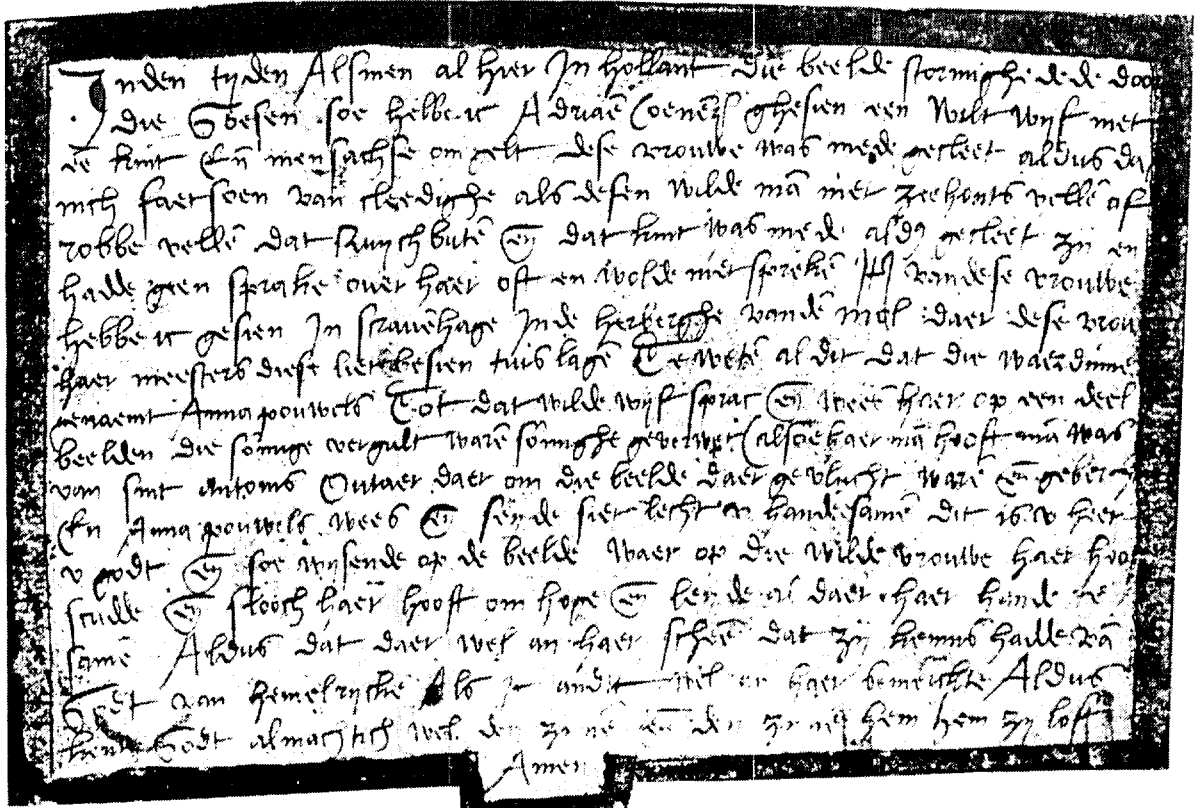 Inden tyden Alsmen al hier In hollant die beelde stormighe dede door
die Goesen soe hebbe ic Adriaē Coenē ghesien een wilt wijf met
eē kint Eñ men sachse om gelt dese vrouwe was mede gecleet aldus da
faetsoen van cleedighe als desen wilde mā met zeehonts vellē of
robbe vellē dat ruychbutē eñ dat kint was mede ald9 gecleet zij en
hadde geen sprake over haer oft en wolde niet sprekē van dese vrouwe
hebbe ic gesien In scravēhage Inde herberghe vandē mol daer dese vrou
haer meesters diese liet besien tuis lagē Te wetē al dit dat die waerdinne
genaemt Anna pouwels Tot dat wilde wijf sprac eñ wees haer op een deel
beelden die somige vergult warē somighe geverwet alsoe haer mā hooft mā was
van sint antonis Outaer daer om die beelde daer gevlucht warē eñ geber
Eñ Anna pouwels wees eñ seyde siet lecht u handē samē dit is u hier
u godt eñ soe wijsende op de beelde waer op die wilde vrouwe haer hoo
scudde eñ slooch haer hooft om hoge eñ leyde al daer haer hande te
samē Aldus dat daer wel an haer scheē dat zij kennis hadde vā
Godt van hemelrijcke Als ic wel an haer bemerckte Aldus
kent Godt almachtich wel den zinē eñ den zinē hem hem zij loff
Amen